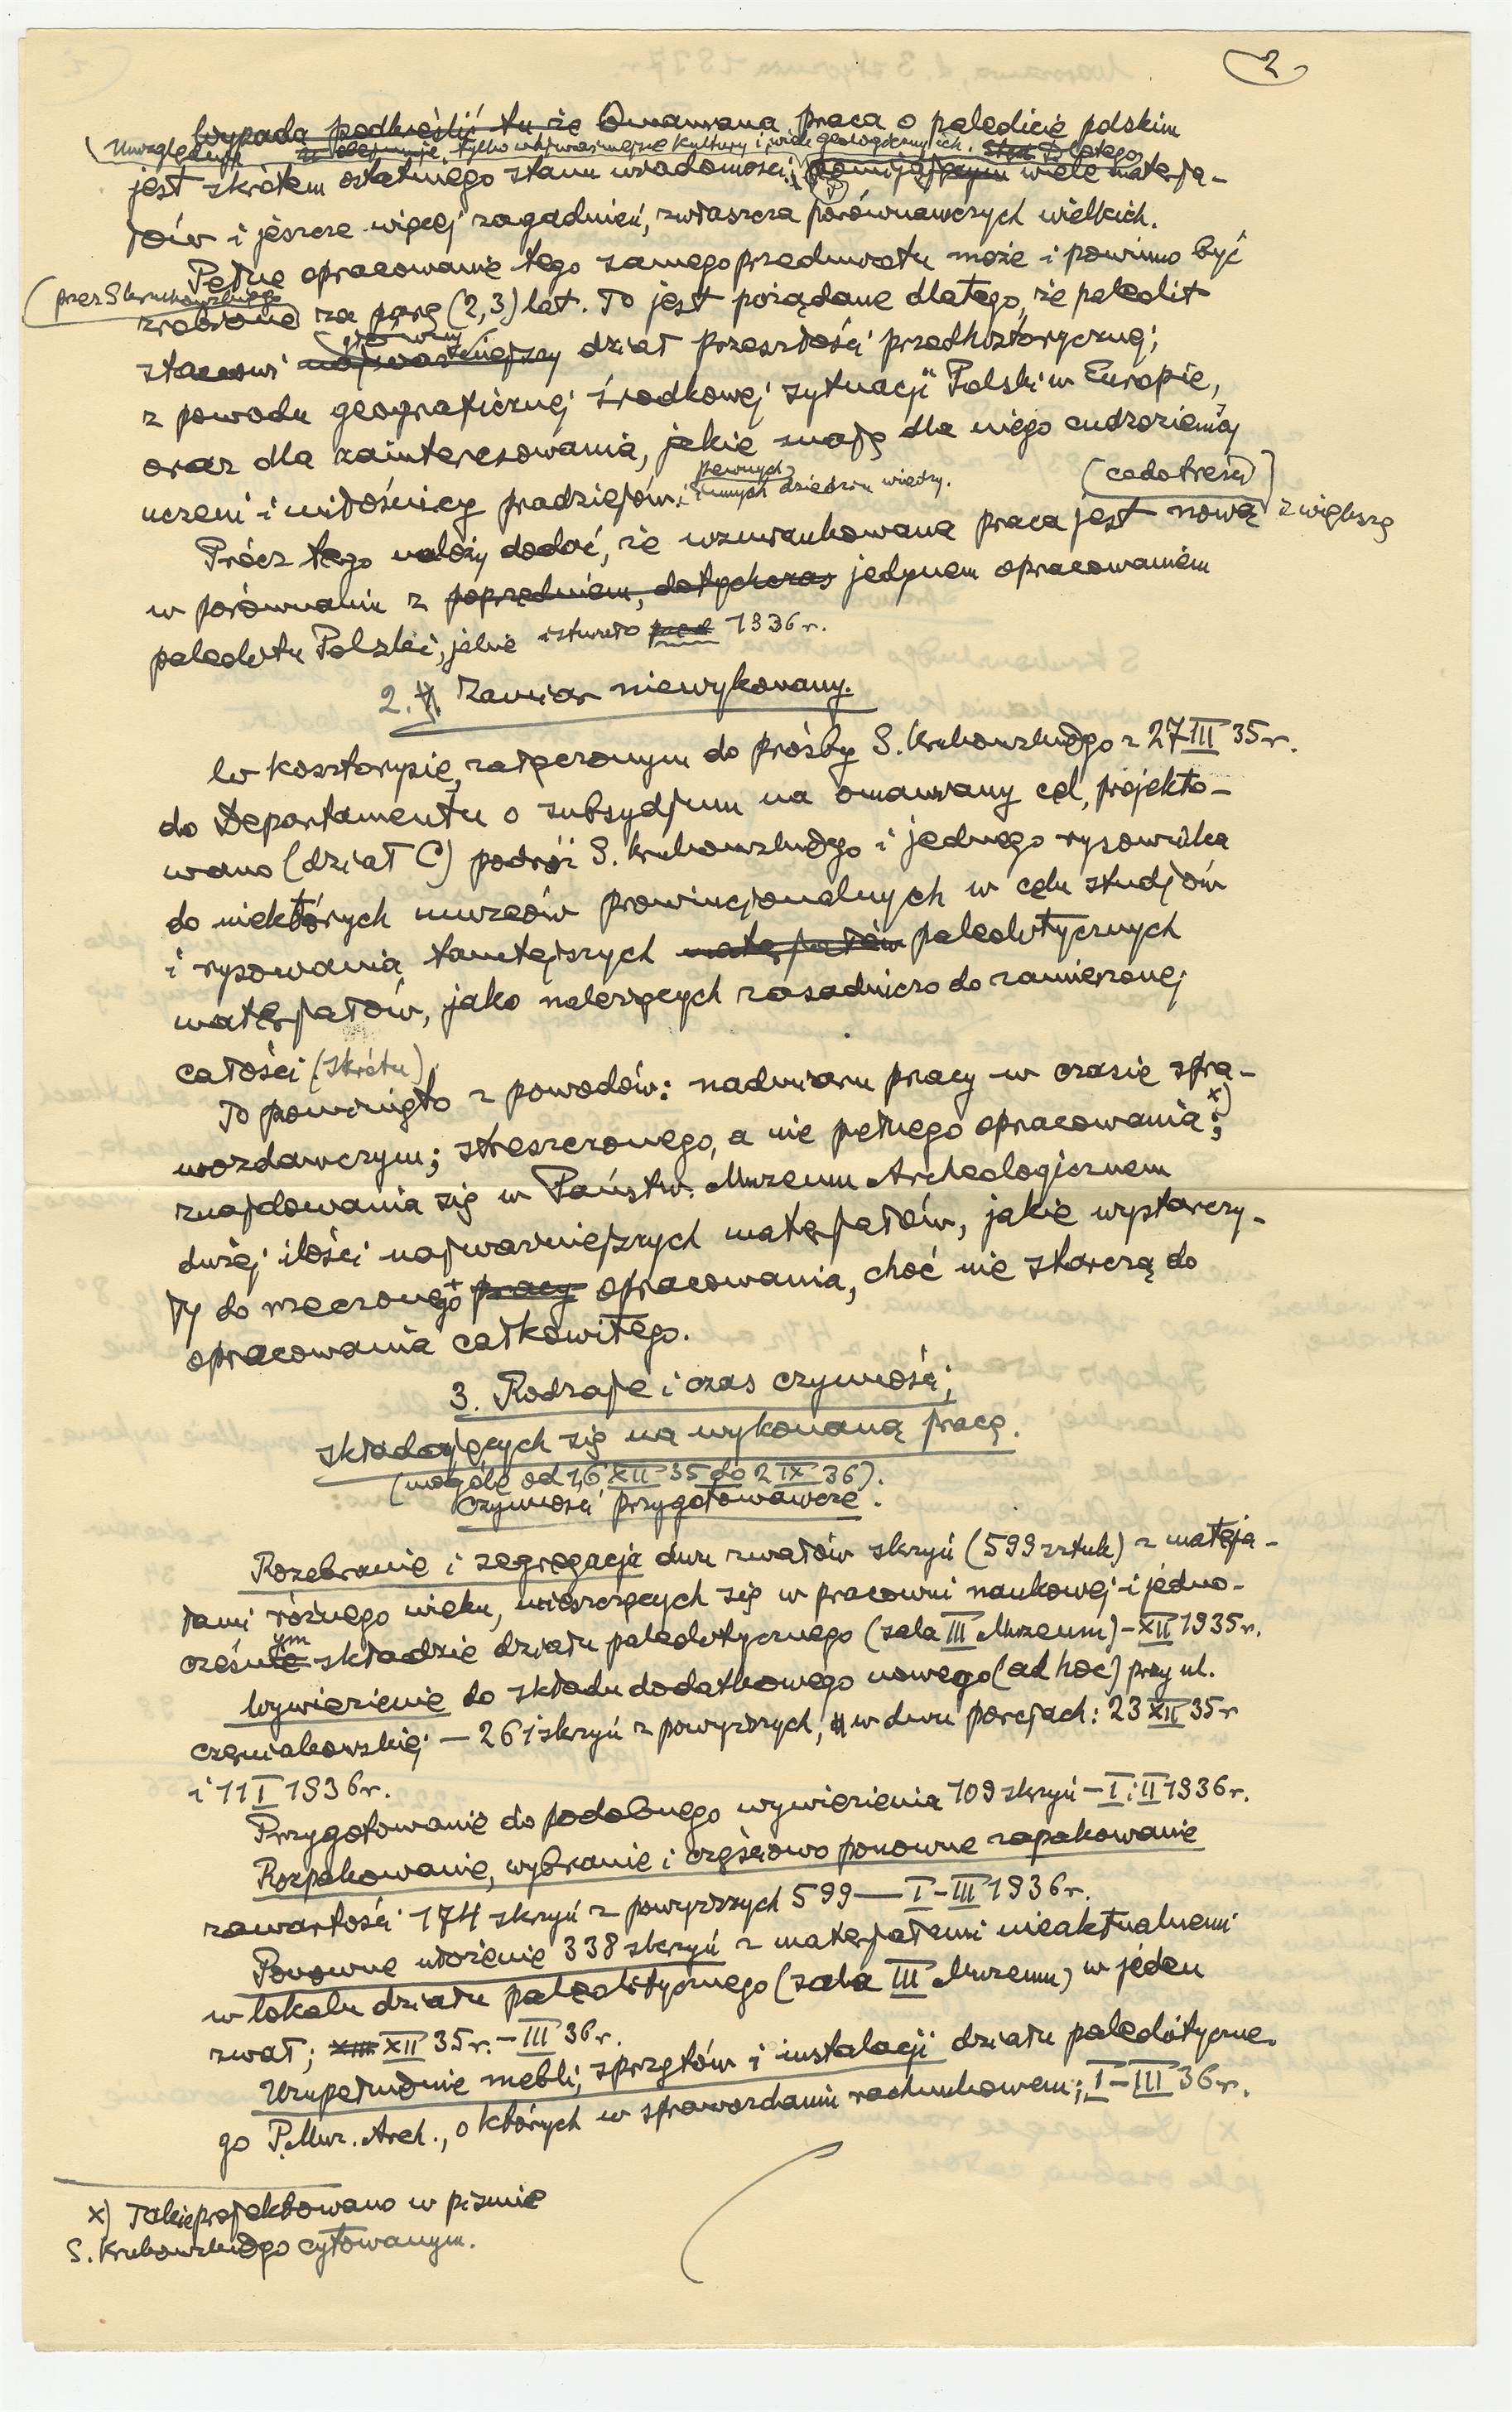 2
Wypada podkreślić tu, że Omawiana praca o paleolicie polskim
Uwzględnia tylko najważniejsze kultury i wiele geologicznych. Dlatego
jest skrótem ostatniego stanu wiadomości; pomijającym wiele materja-
łów i jeszcze więcej zagadnień, zwłaszcza porównawczych wielkich.
Pełne opracowanie tego samego przedmiotu może i powinno być
(przez S. Krukowskiego)
zrobione za parę (2,3) lat. To jest pożądane dlatego, że paleolit
główny
stanowi najważniejszy dział przeszłości przedhistorycznej;
z powodu geograficznej środkowej sytuacji Polski w Europie,
oraz dla zainteresowania, jakie mają dla niego cudzoziemcy
pewnych
uczeni i miłośnicy pradziejów i innych dziedzin wiedzy.
(co do treści)
Prócz tego należy dodać, że wzmiankowana praca jest nową z większą
w porównaniu z poprzedniem, dotychczas jedynem opracowaniem
paleolitu Polski, jakie istniało przed 1936 r.
2. Zamiar niewykonany.
W kosztorysie, załączonym do prośby S. Krukowskiego z 27 III 35 r.
do Departamentu o subsydjum na omawiany cel, projekto-
wano (dział C) podróż S. Krukowskiego i jednego rysownika
do niektórych muzeów prowincjonalnych w celu studjów
i rysowania tamtejszych materjałów paleolitycznych
materjałów, jako należących zasadniczo do zamierzonej
całości (skrótu).
To pominięto z powodów: nadmiaru pracy w czasie spra-
wozdawczym; streszczonego, a nie pełnego opracowania x);
znajdowania się w Państw. Muzeum Archeologicznem
dużej ilości najważniejszych materjałów, jakie wystarczy-
ły do rzeczonego pracy opracowania, choć nie starczą do
opracowania całkowitego.
3. Rodzaje i czas czynności,
składających się na wykonaną pracę.
(wogóle od 16 XII 35 do 2 IX 36).
Czynności przygotowawcze.
Rozebranie i segregacja dwu zwałów skrzyń (599 sztuk) z materja-
łami różnego wieku, mieszczących się w pracowni naukowej i jedno-
ym
cześnie składzie działu paleolitycznego (sala III Muzeum) – XII 1935 r.
Wywiezienie do składu dodatkowego nowego (ad hoc) przy ul.
Czerniakowskiej – 261 skrzyń z powyższych, w dwu porcjach: 23 XII 35 r
i 11 I 1936 r.
Przygotowanie do podobnego wywiezienia 109 skrzyń – I i II 1936 r.
Rozpakowanie, wybranie i częściowo ponowne zapakowanie
zawartości 174 skrzyń z powyższych 599 — I–III 1936 r.
Ponowne ułożenie 338 skrzyń z materjałami nieaktualnemi
w lokalu działu paleolitycznego (sala III Muzeum) w jeden
zwał; XII 35 r. – III 36 r.
Uzupełnienie mebli, sprzętów i instalacji działu paleolityczne-
go P. Muz. Arch., o których w sprawozdaniu rachunkowem; I–III 36 r.
x) Takie projektowano w piśmie
S. Krukowskiego cytowanym.